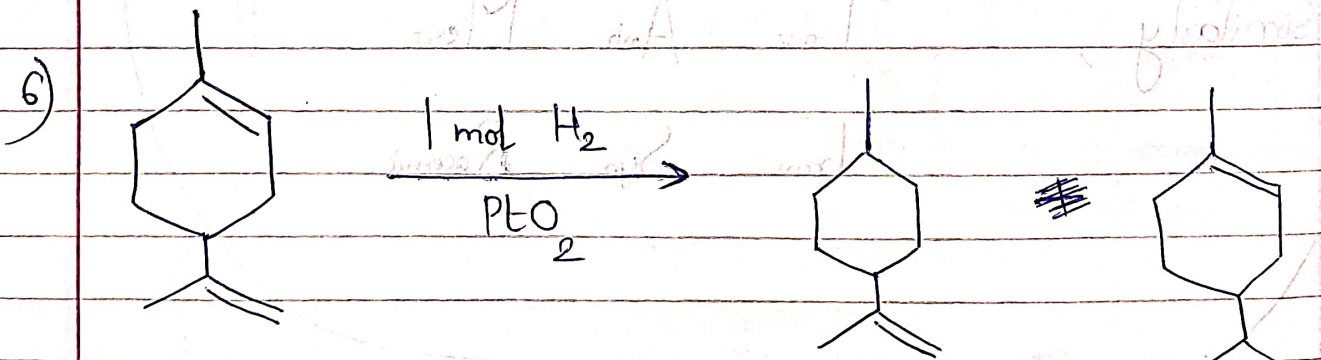 6)
1 mol H2
PtO2